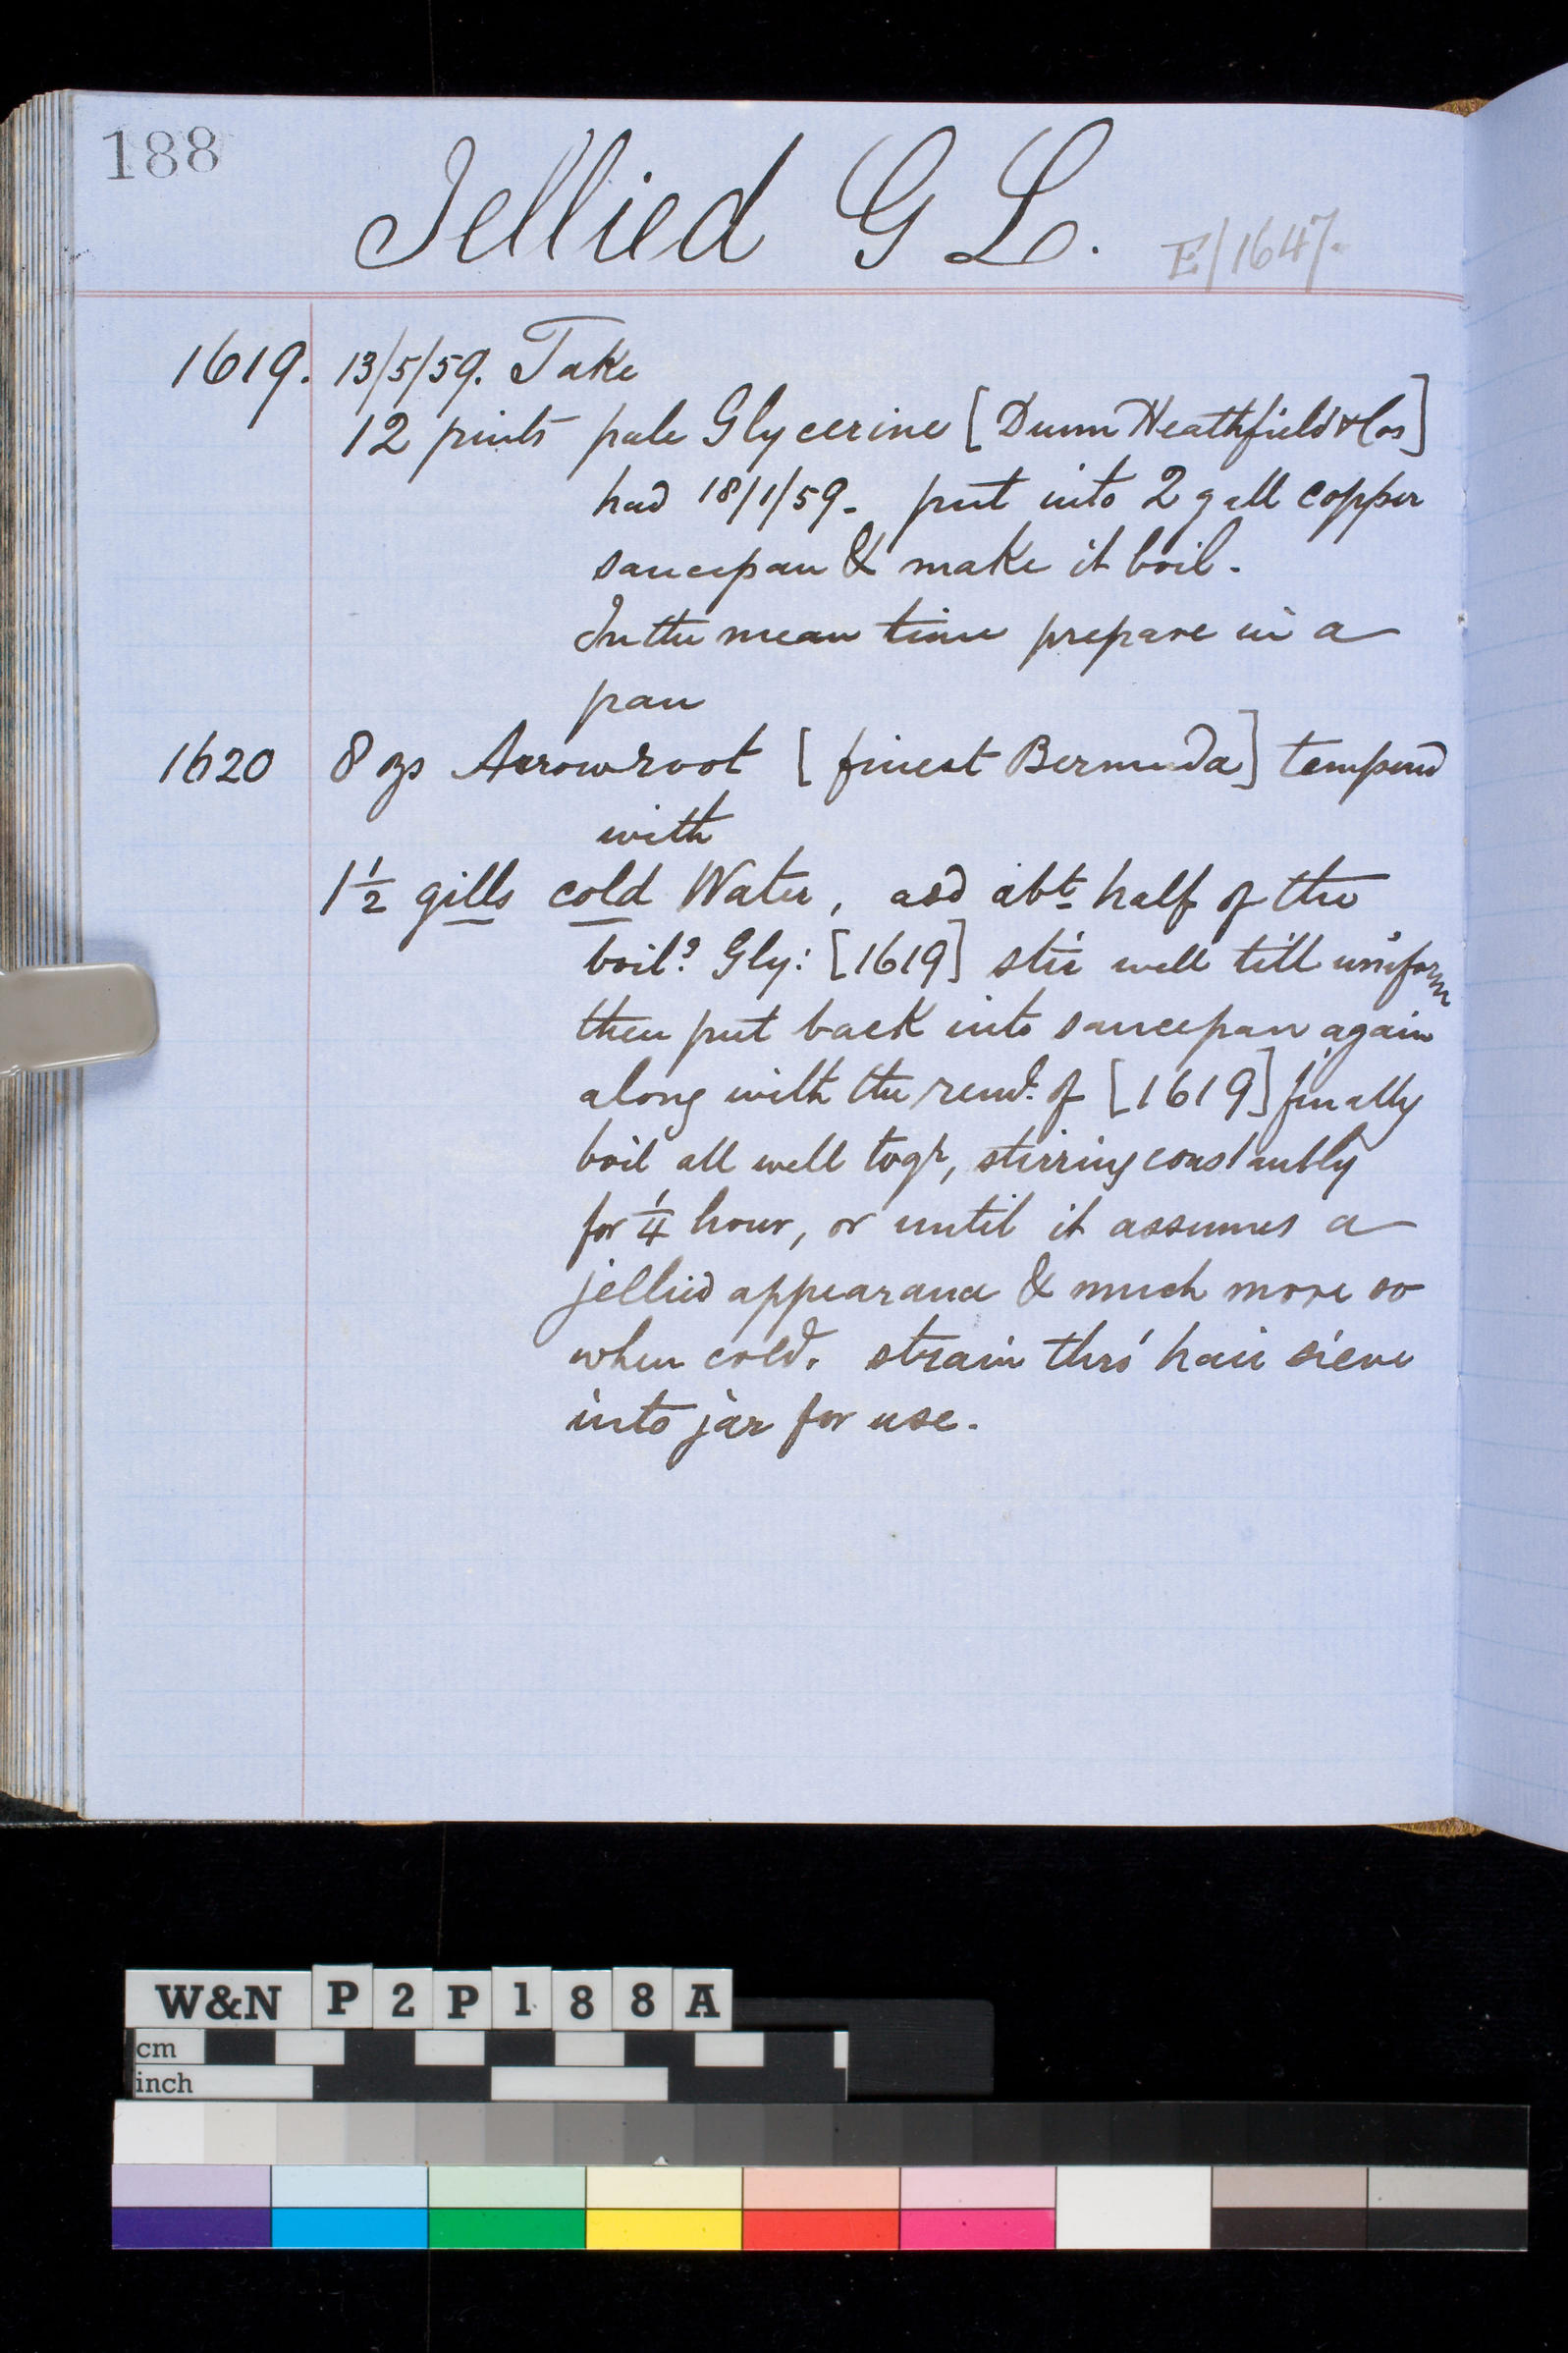 188
Jellied G L.
E/1647.
1619. 13/5/59. Take
12 pints pale Glycerine [Dunn Heathfield & Cos]
had 18/1/59. put into 2 gall copper
saucepan & make it boil.
In the mean time prepare in a
pan
1620 8 ozs Arrowroot [finest Bermuda] tempered
with
1½ gills cold Water, add abt. half of the
boilg Gly: [1619] stir well till uniform
then put back into saucepan again
along with the remd. of [1619] finally
boil all well togr, stirring constantly
for ¼ hour, or until it assumes a
jellied appearance & much more so
when cold. strain thro' hair sieve
into jar for use.
W&N P2P188A
cm
inch